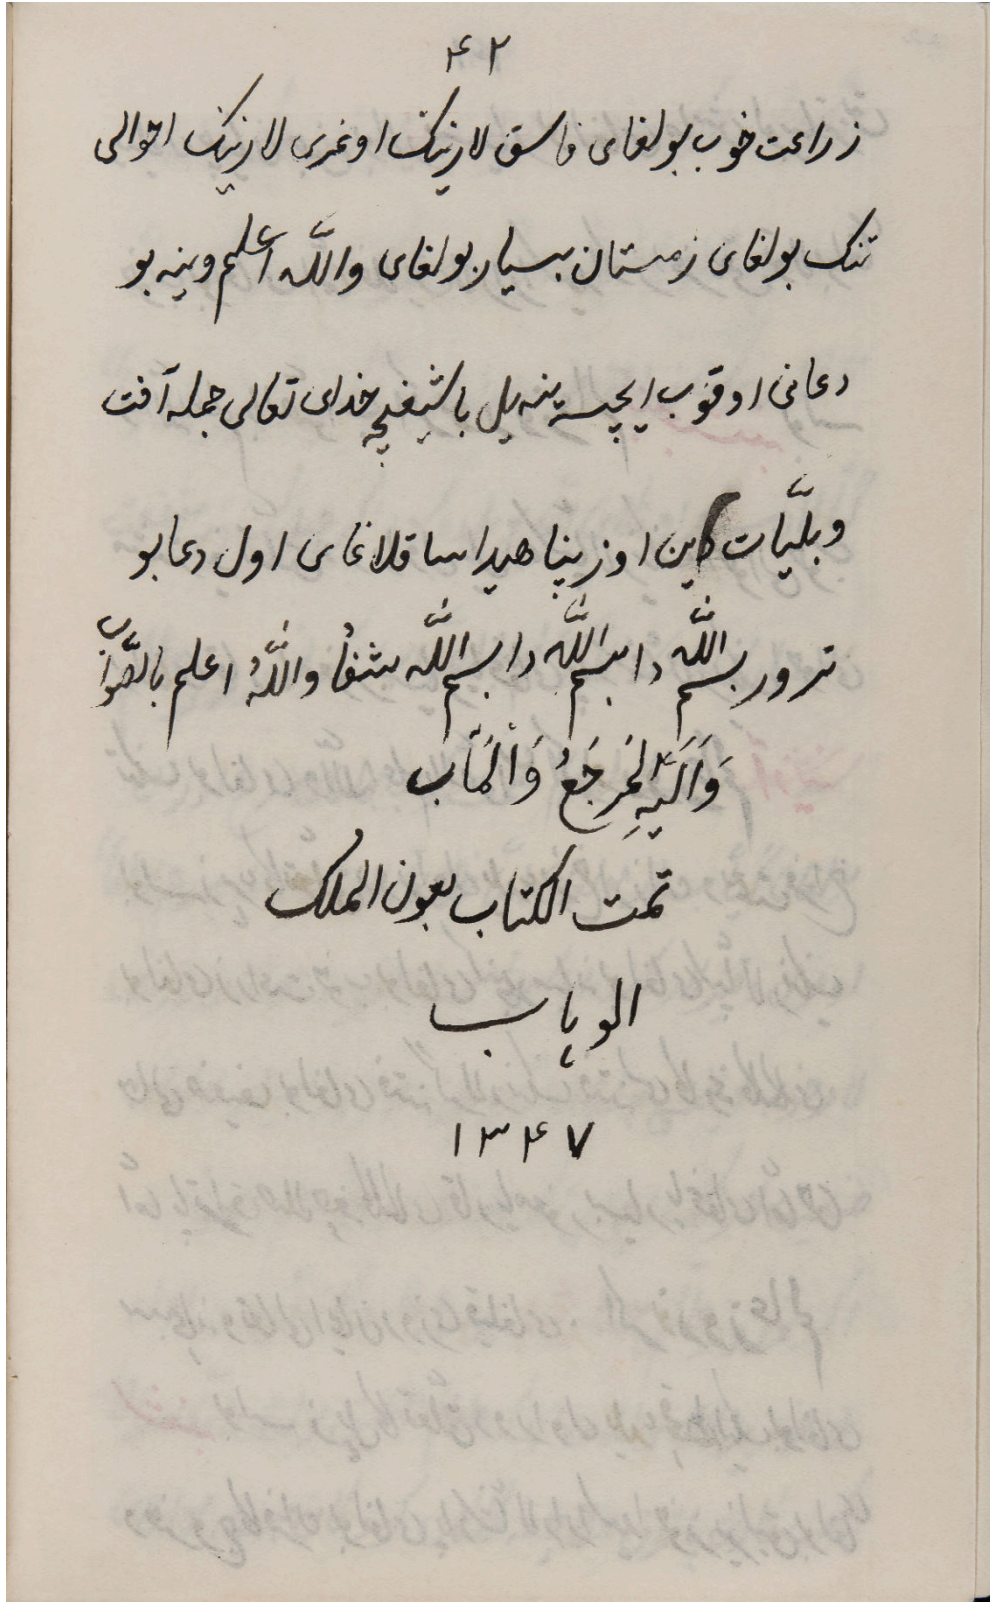 ۴۲
زراعت خوب بولغای فاسق لارنینک اوغری لارنینک احوالی
تنک بولغای زمستان بسیار بولغای واللّه اعلم وینه بو
دعانی اوقوب ایچسه ینه یل باشیغچه خدای تعالی جمله آفت
وبلیّات دین اوز پناهیدا ساقلاغای اول دعا بو
ترور بسم اللّه دا بسم اللّه دا بسم اللّه واللّهُ اعلم بالصّواب
وَاِلَیْهِ الْمَرجَعُ وَالْمَاٰب
تمت الکتاب بعون الملک
الوهاب
۱۳۴۷